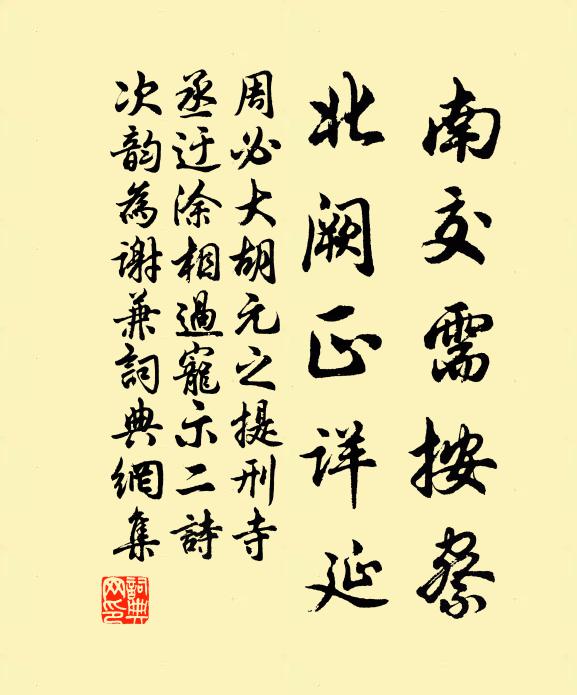 南交需按察
北阙正详延
周必大胡元之提刑寺
丞迂涂相過寵示二詩
次韵為謝兼詞典網集
詞典
网印